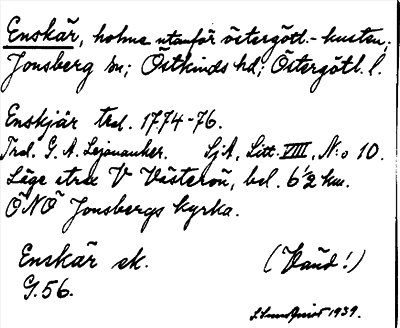 Enskär, holme utanför östergötl.-kusten;
Jonsberg sn; Östkinds hd; Östergötl. l.
Enskjär trol. 1774-76.
Trol. G. A. Lejonanker. SjA, Litt. VIII, N:o 10.
Läge strax V Västerön, bel. 6½ km.
ÖNÖ Jonsbergs kyrka.
Enskär sk.
G.56.
1939.